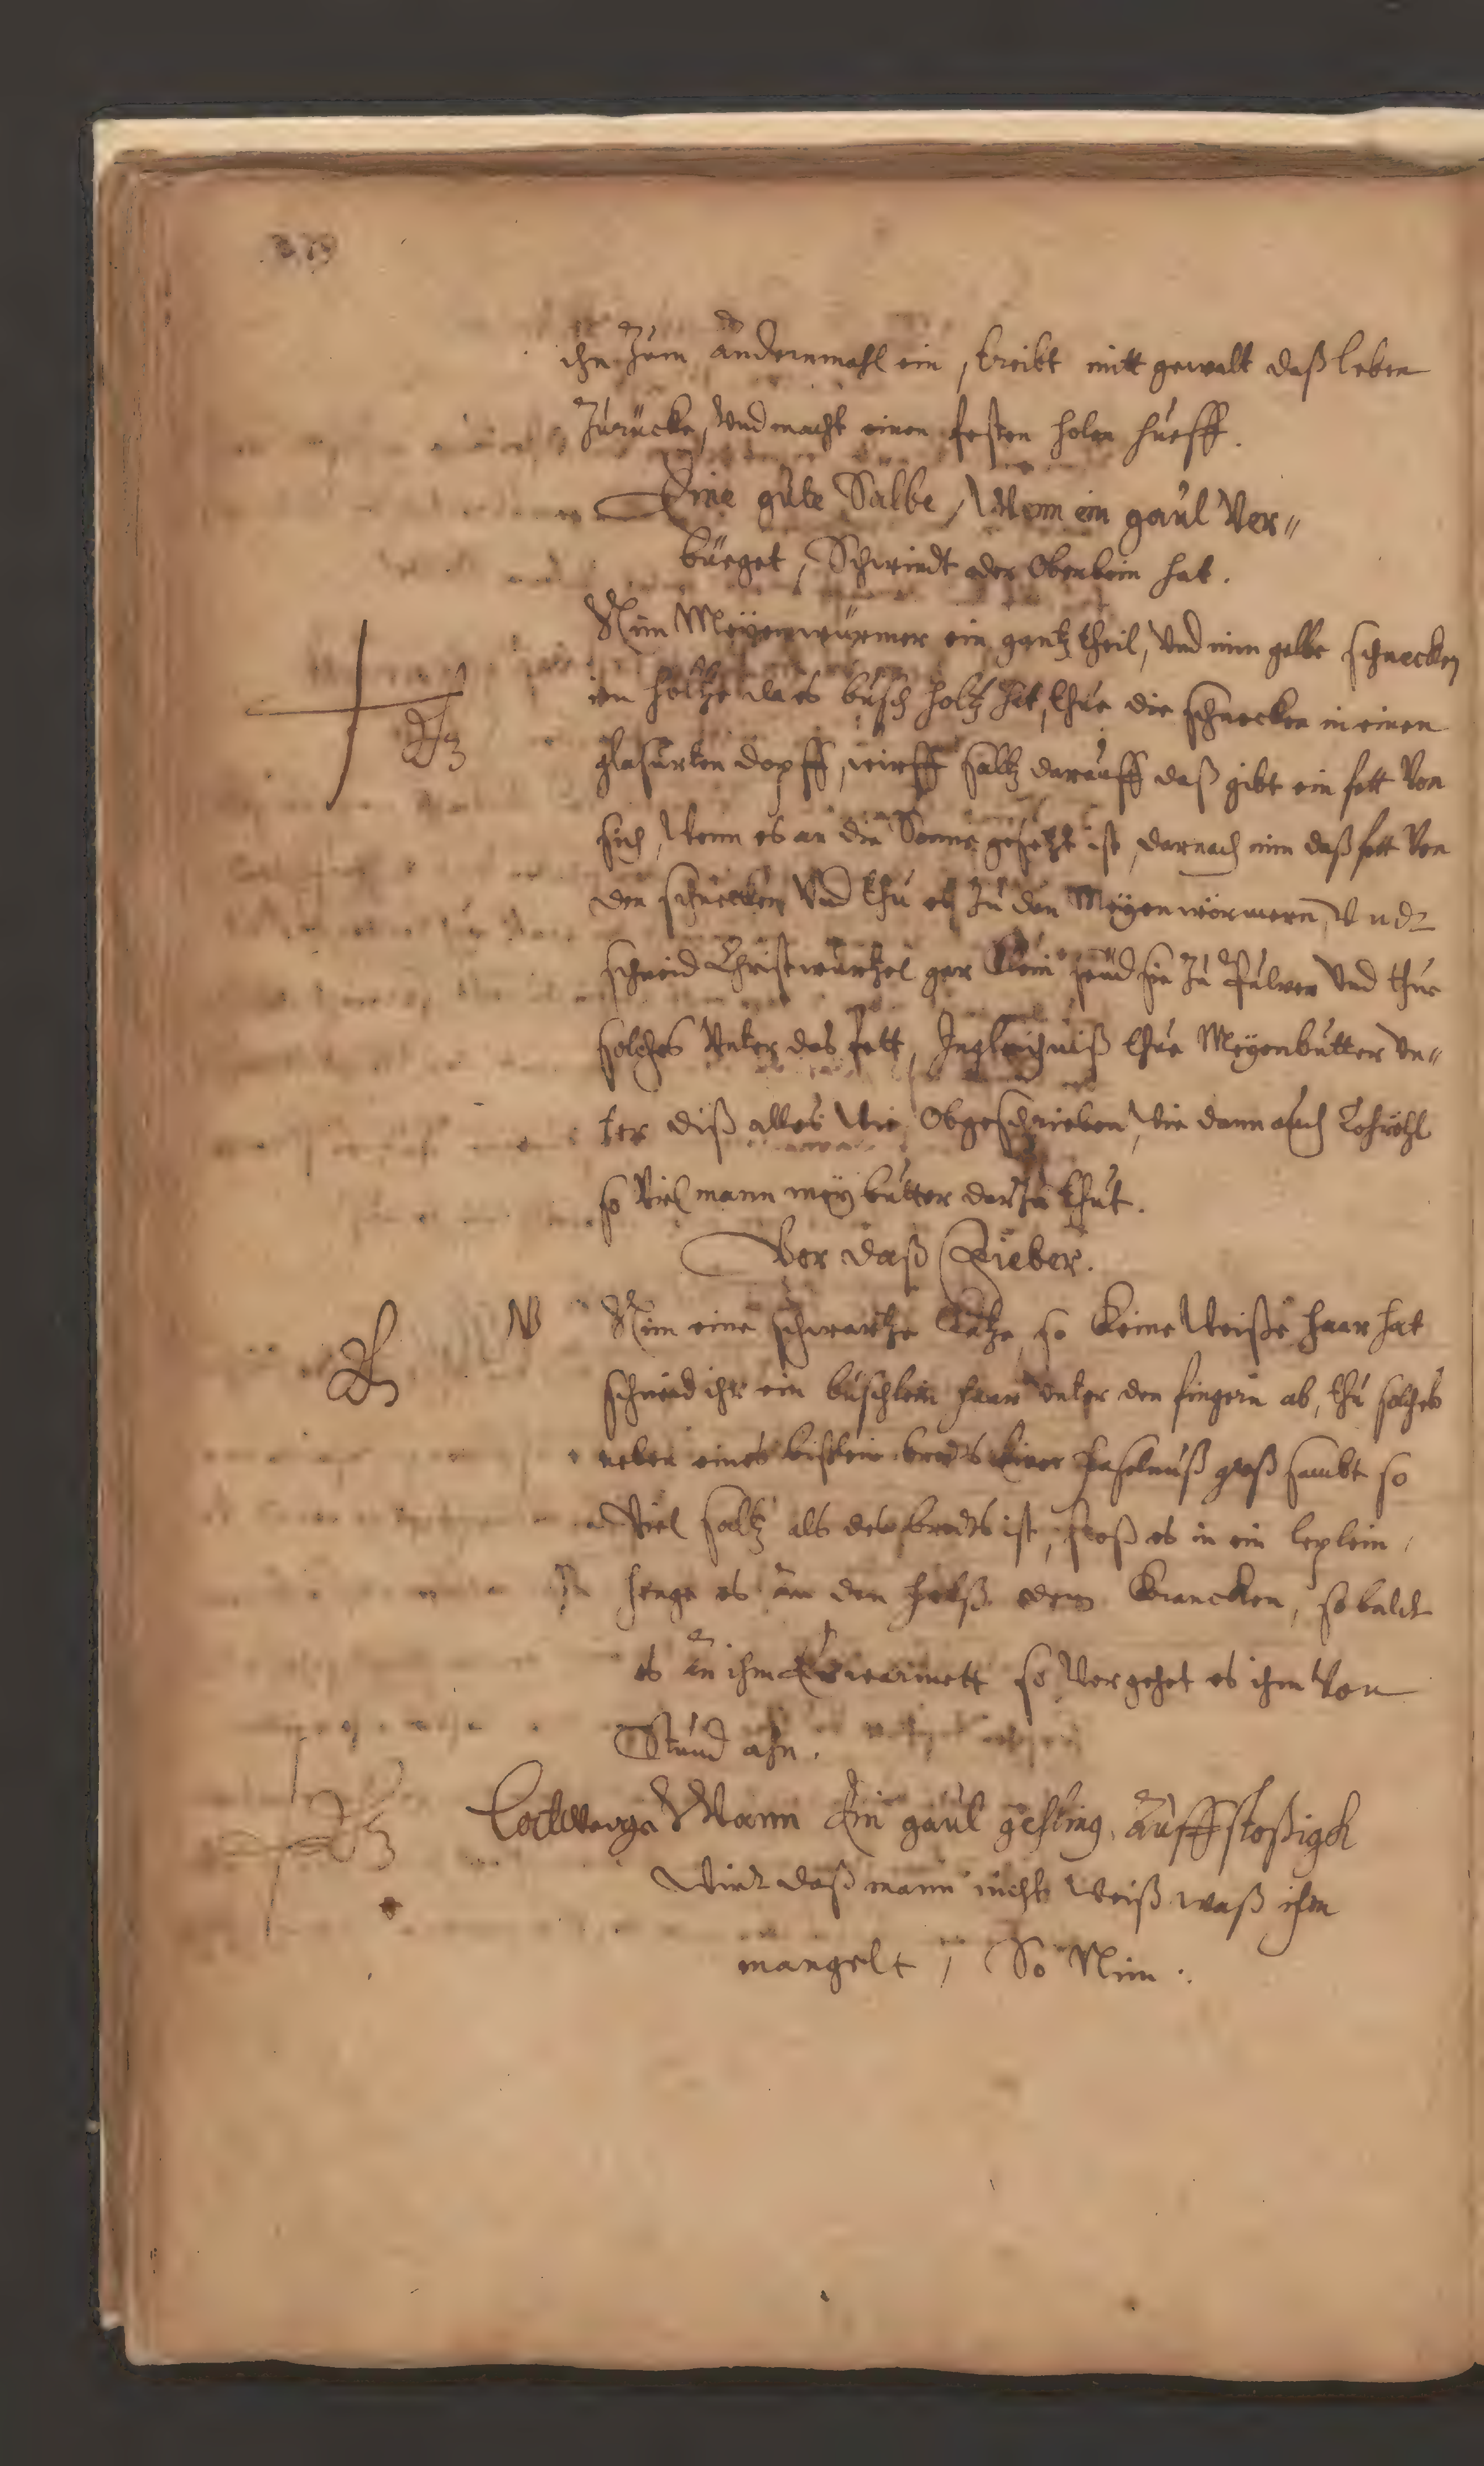 ihn Zum andernmahl ein, treibt mitt gewalt daß leben
Zurücke, Und macht einen festen holen hueff.
Eine gute Salbe, Wenn ein gaul Ver-
büeget, Schwindt oder Oberbein hat.
Nim Meyenwürmer ein gantz theil, Und nim gelbe schnecken
im holtze da es busch holtz hat, thue die schnecken in einen
glasurten dopff, wirff saltz darauff daß gibt ein fett Von
sich, Wenn es an die Sonne gesetzt ist, darnach nim daß fett Von
den schnecken Und thu es Zu den Meyenwörmern, Undt
schneid Christwurtzel gar klein Zu Pulver Und thue
solches Unter das fett, Ingleichniß thue Meyenbutter Un-
ter diß alles Wie Obgeschrieben, Wie dann auch Lohröhl
so Viel mann mey butter darzu thut.
Vor daß Fieber.
Nim eine schwartze Katze so keine Weiße haar hat
schneid ihr ein buschlein haar Unter den fingern ab, thu solches
neben eines bißlein brodts Einer haselnuß groß sambt so
Viel saltz als des brodts ist, stoß es in ein leplein,
henge es an den halß dem Krancken, so baldt
es an ihm Erwarmett so Vergehet es ihm Von
Stund ahn.
Wann Ein gaul gehling auffstoßigch
Wirdt daß mann nicht Weiß waß ihm
mangelt, So Nim.